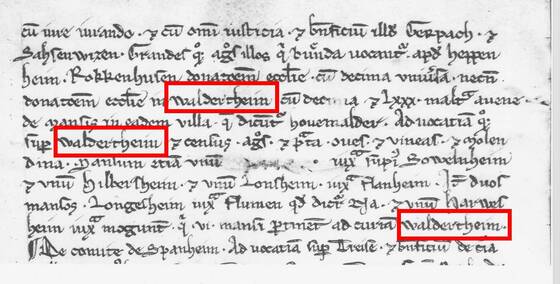 cu iure iurando · ⁊ cu omi iusticia · ⁊ bnficiu illd Gerpach · ⁊
Sahsenwizen · Grandes qʒ agͦs illos q̇ buͥnda vocant᷑ apd heppen
heim · Rokkenhusen donatoem ecclie · cu decima · necn
donatoem ecclie in Waldertheim cu decima ⁊ lxxx · maltͣ avene ·
de mansis in eadem villa · q dicunt᷑ hovemalder · Advocatia qʒ
sup Waldertheim ⁊ census · agͦs · ⁊ pͣta · oves · ⁊ vineas · ⁊ molen
dina · Mansum etia unu iuxͣ Sowelnheim
⁊ unu Hilbersheim · ⁊ unu Lonsheim · iuxͣ flanheim · It duos
mansos · Longesheim iuxͣ flumen qd dict᷑ · ⁊ unu harwes
heim iuxͣ mogunt · q · vi · mansi ptinet ad curia Waldertheim ·
¶ De comite de Spanheim · Advocatia sup Treise · ⁊ bnficiu de